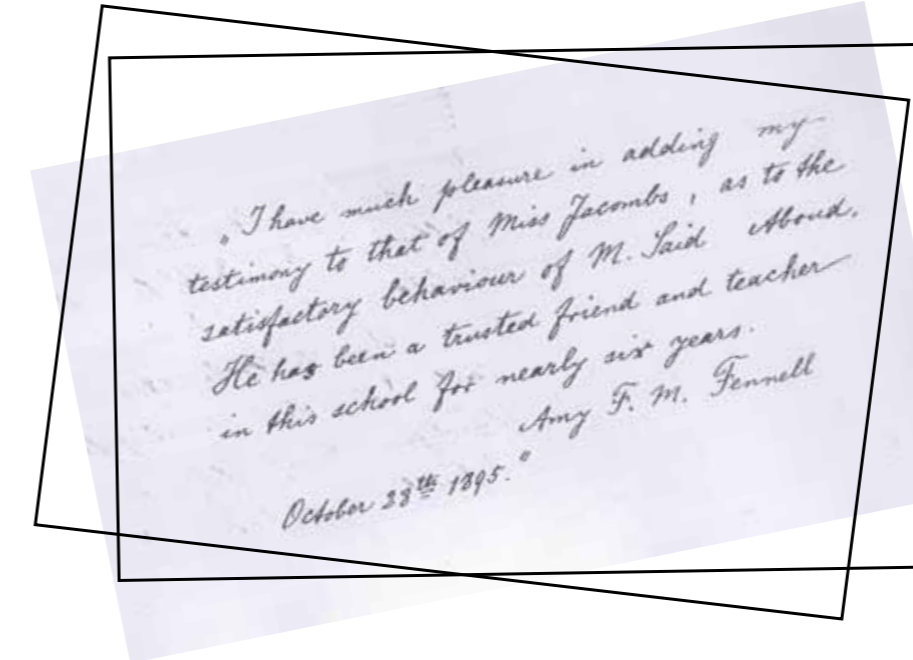 „I have much pleasure in adding my
testimony to that of Miss Jacombs, as to the
satisfactory behaviour of M. Said Aboud.
He has been a trusted friend and teacher
in this school for nearly six years.
Amy F. M. Fennell
October 28th 1895.“